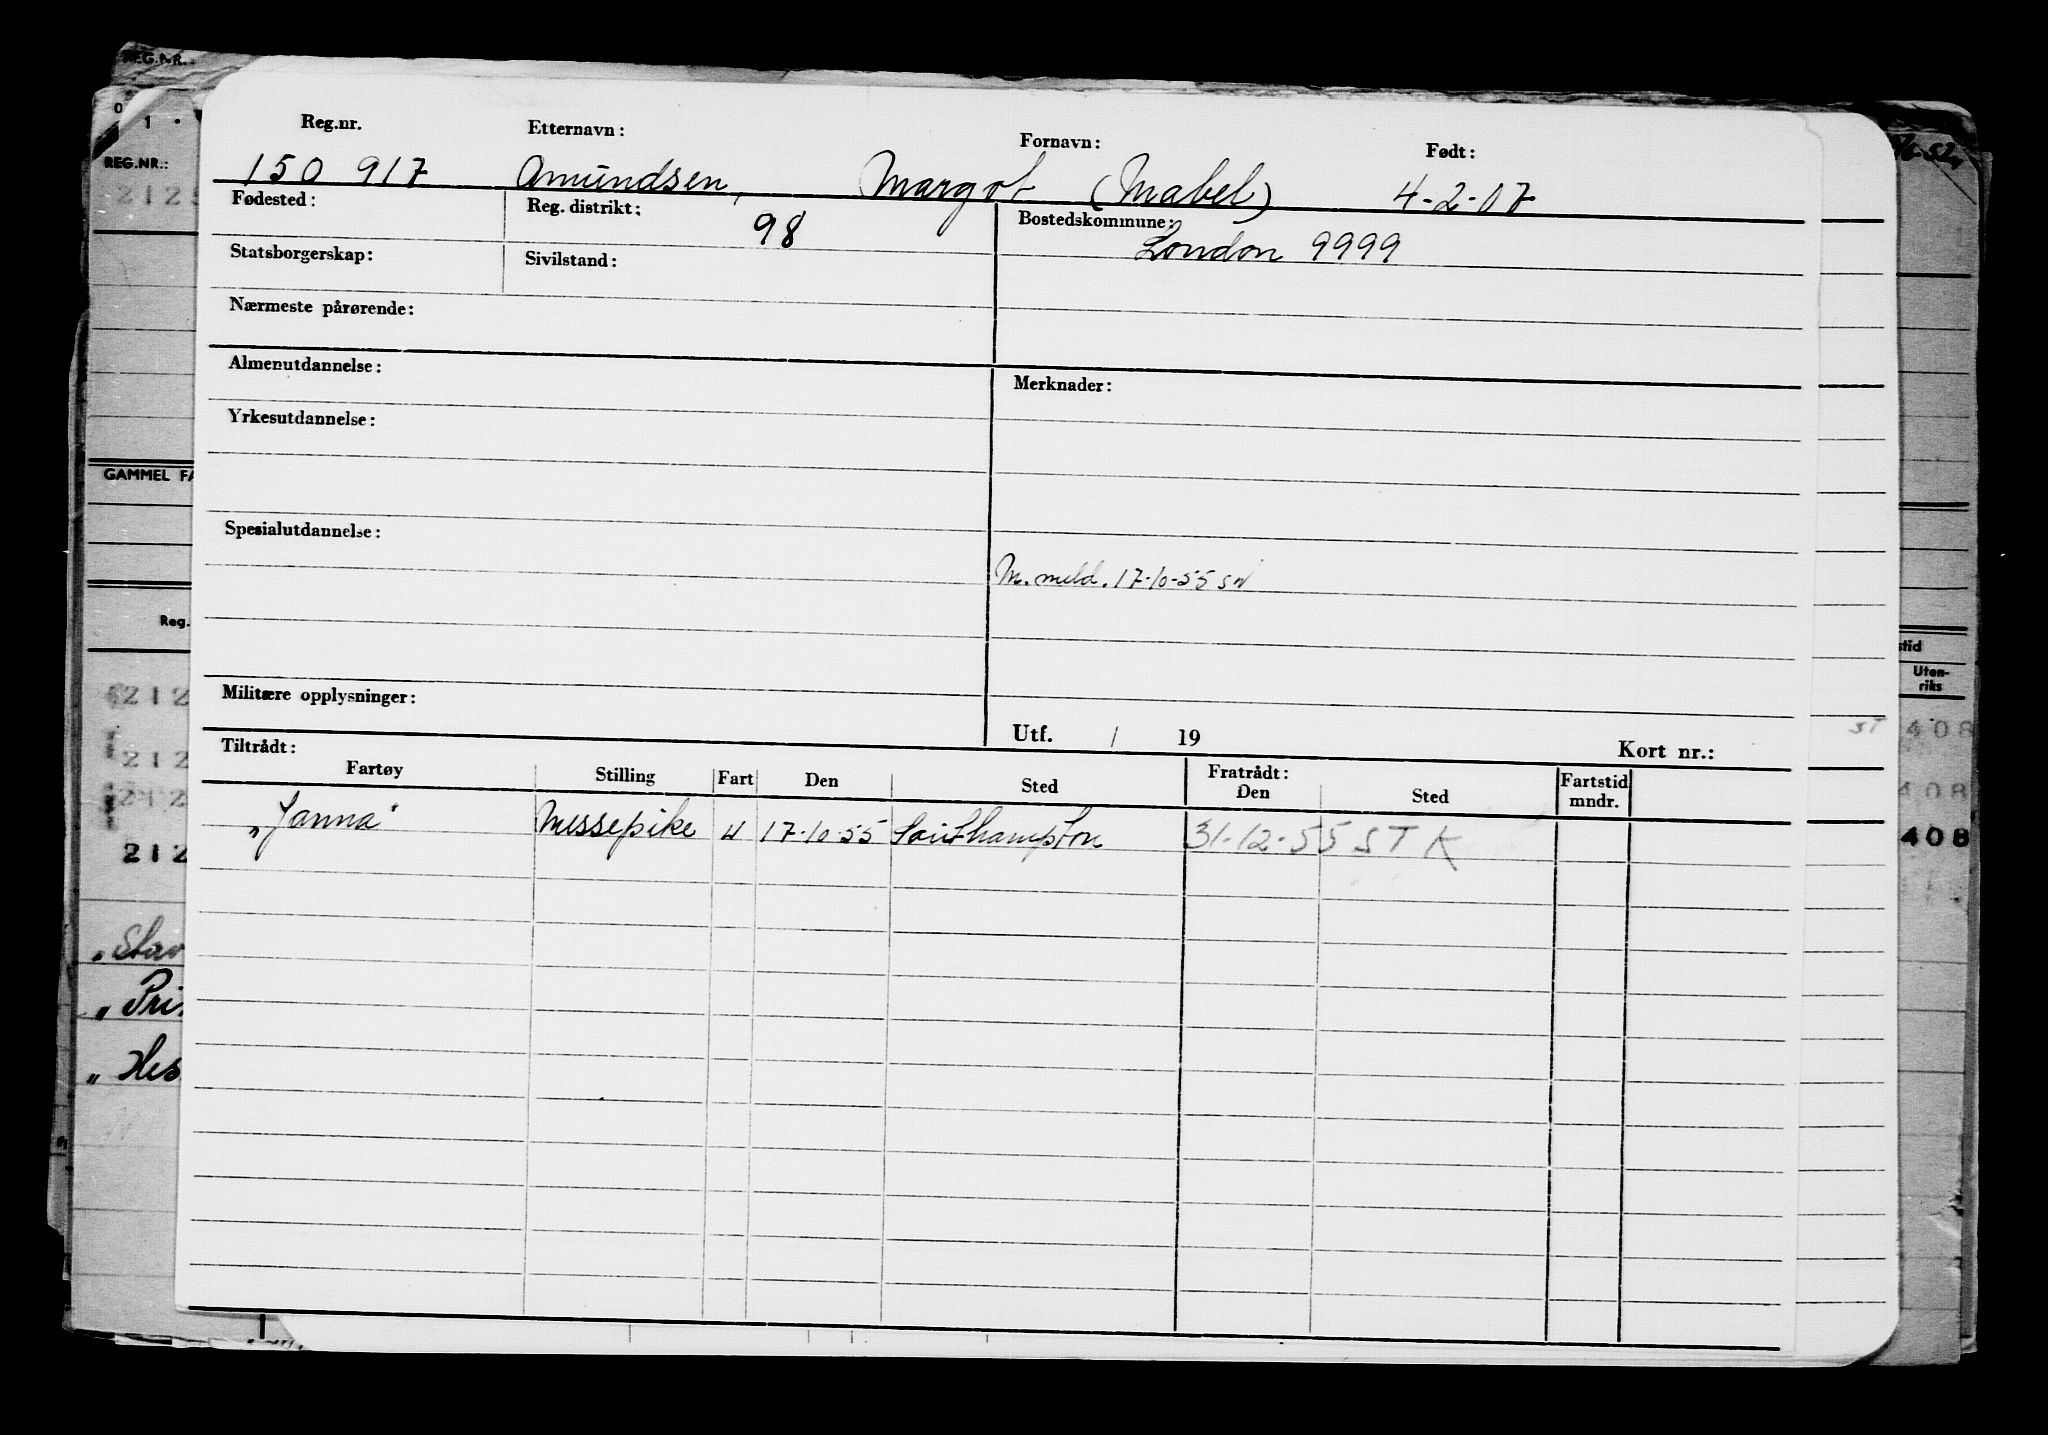 REG.NR.
0
1
REG.NR.:
Reg.nr. Etternavn: Fornavn: Født:
150 917 Amundsen, Margot (Mabel) 4-2-07
Fødested: Reg. distrikt: 98 Bostedskommune: London 9999
Statsborgerskap: Sivilstand:
Nærmeste pårørende:
Almenutdannelse: Merknader:
Yrkesutdannelse:
GAMMEL FA
Spesialutdannelse:
M. meld. 17-10-55 SN
Reg.
Militære opplysninger:
Utf. / 19 Kort nr.:
Tiltrådt: Fratrådt:
Fartøy Stilling Fart Den Sted Den Sted Fartstid mndr.
"Janna" Messepike 4 17-10-55 Southampton 31-12-55 STK
stid
Uten-
riks
212
212
212
212
408
408
408
"Stav
"Pri
"Hes